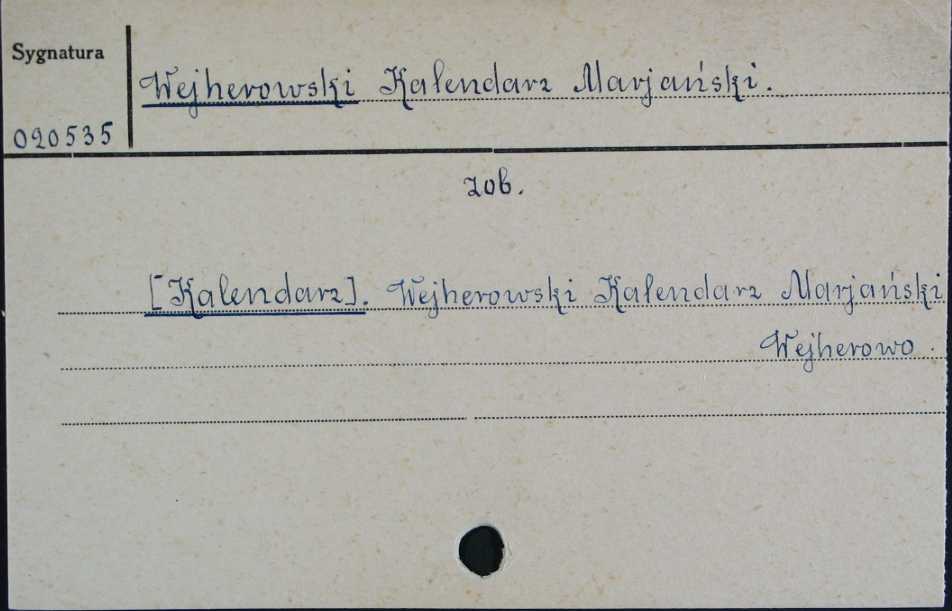 Sygnatura
Wejherowski Kalendarz Marjański.
020535
zob.
[Kalendarz]. Wejherowski Kalendarz Marjański
Wejherowo.